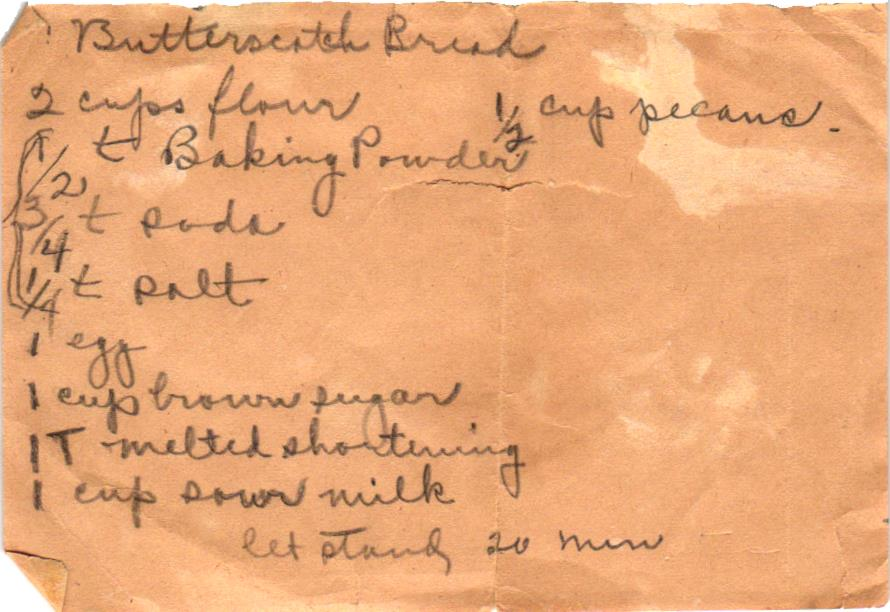 Butterscotch Bread
2 cups flour 1/2 cup pecans.
1/2 t Baking Powder
3/4 t soda
1/4 t salt
1 egg
1 cup brown sugar
1 T melted shortening
1 cup sour milk
let stand 20 min